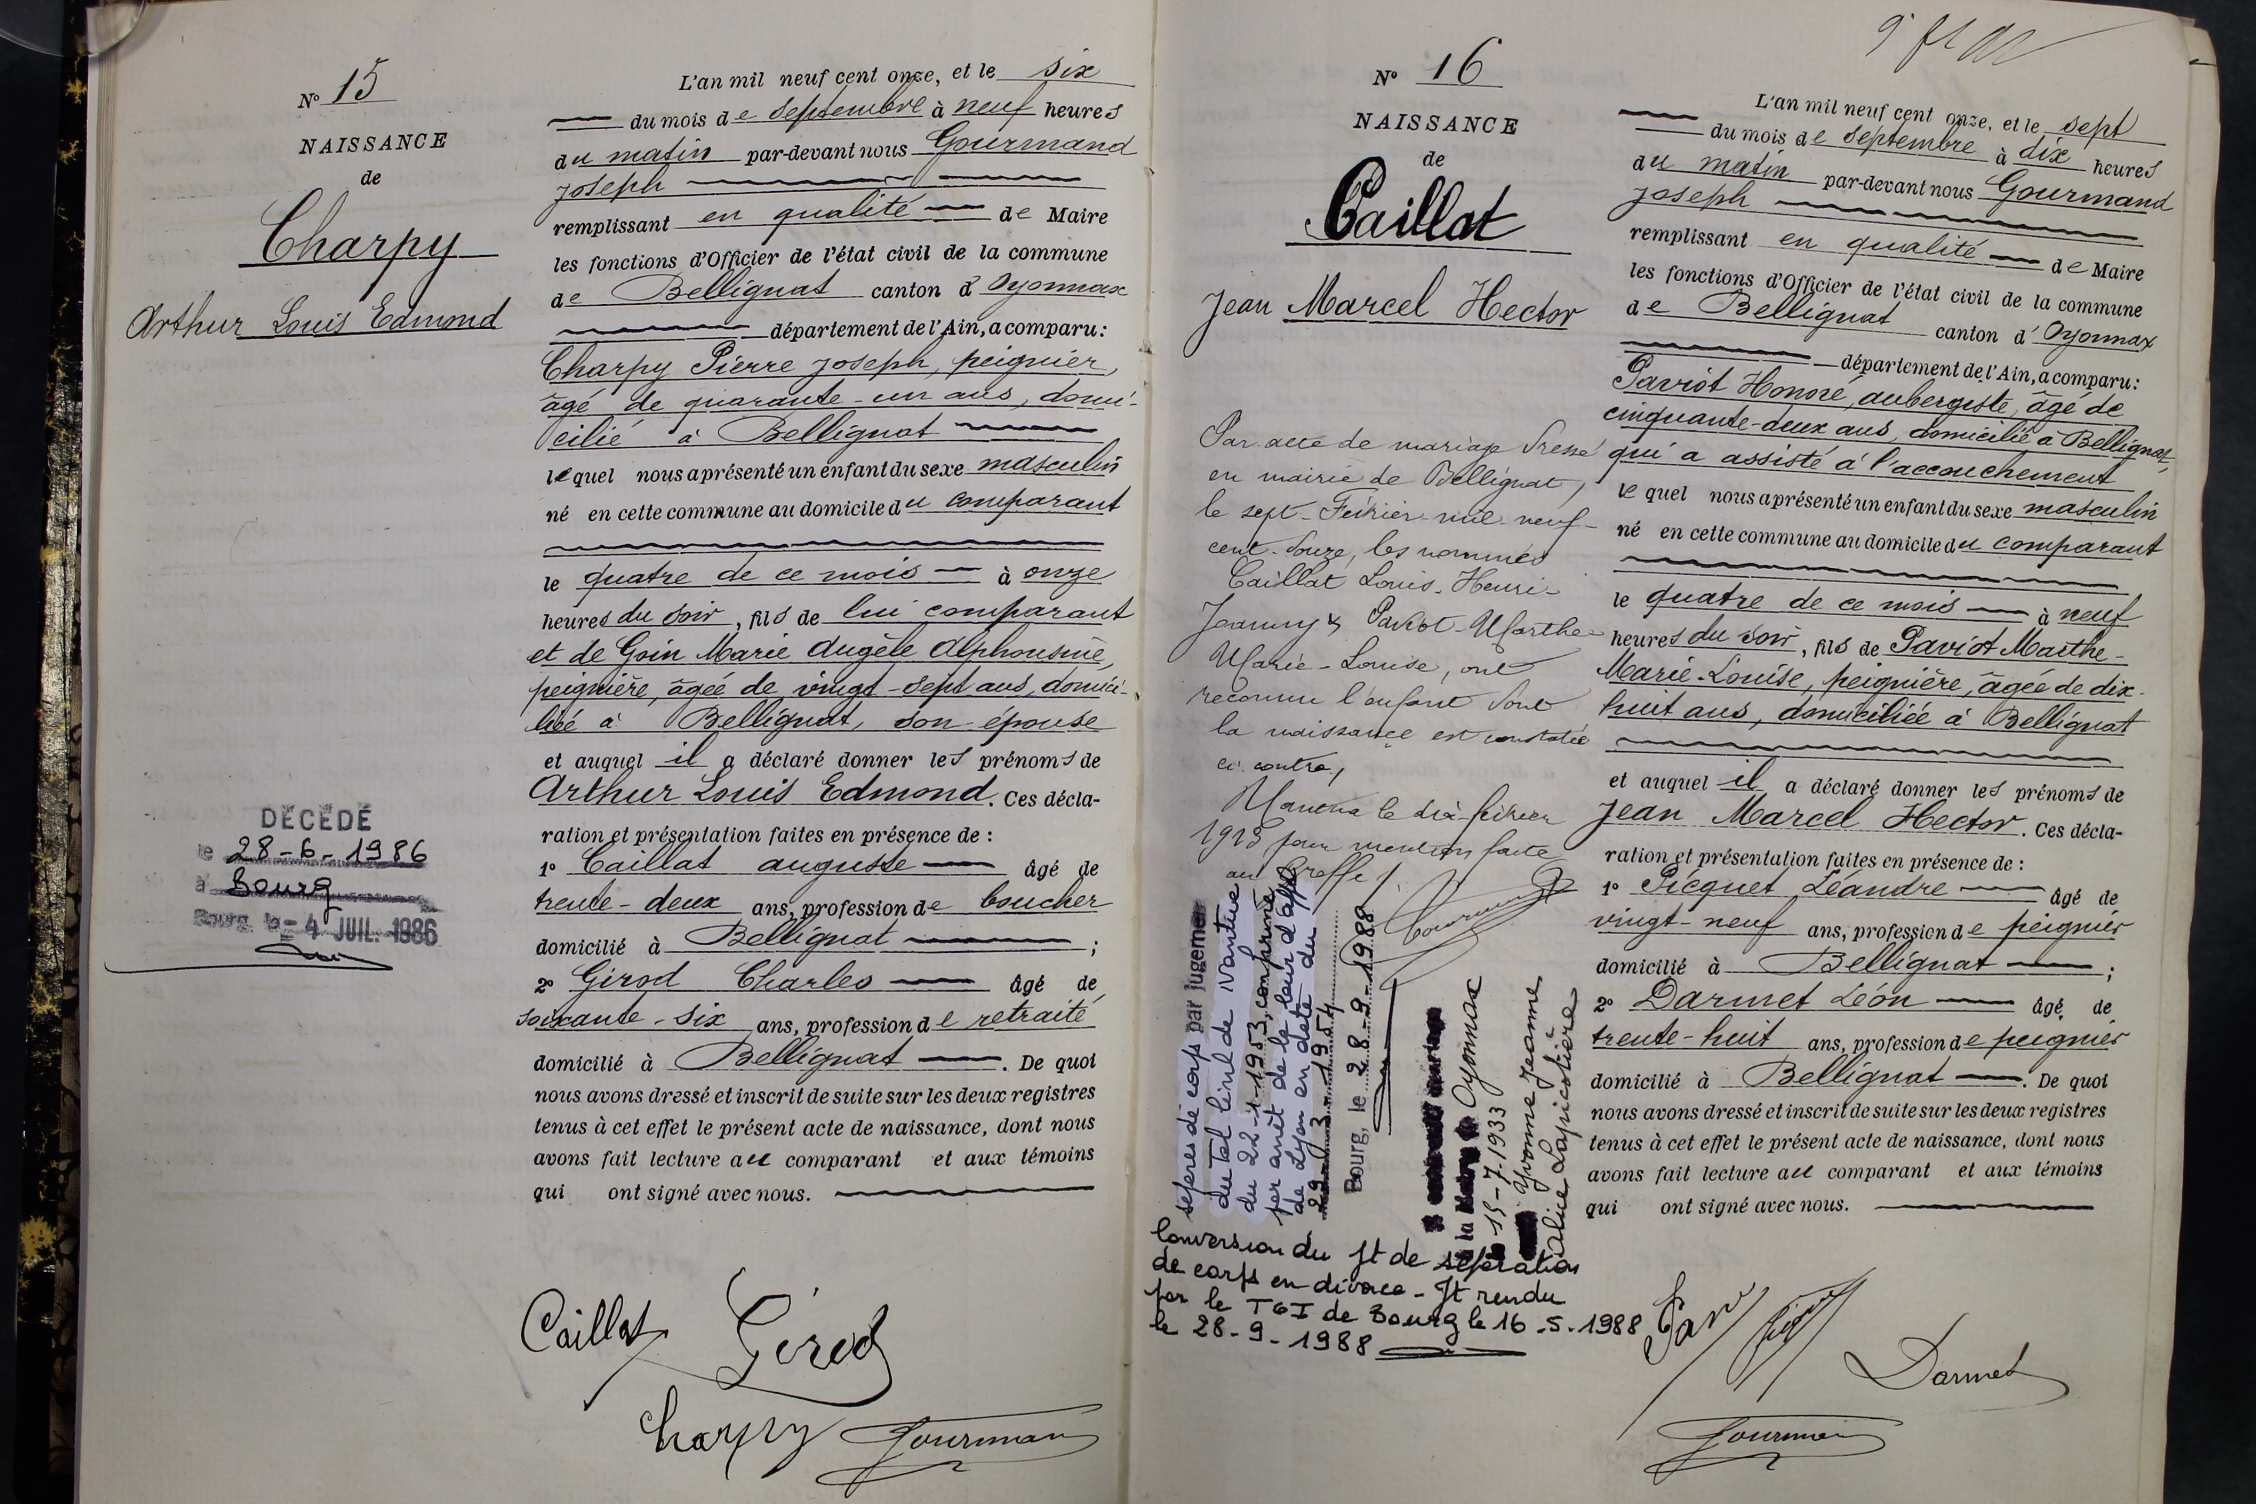 N° 15
NAISSANCE
de
Charpy
Arthur Louis Edmond
DÉCÉDÉ
le 28-6-1986
à Bourg
Bourg, le - 4 JUIL. 1986
L'an mil neuf cent onze, et le six
du mois de septembre à neuf heures
du matin par-devant nous Gourmand
Joseph
remplissant en qualité de Maire
les fonctions d'Officier de l'état civil de la commune
de Bellignat canton d'Oyonnax
département de l'Ain, a comparu:
Charpy Pierre Joseph, peignier,
âgé de quarante-un ans, domi-
cilié à Bellignat
lequel nous a présenté un enfant du sexe masculin
né en cette commune au domicile du comparant
le quatre de ce mois à onze
heures du soir, fils de lui comparant
et de Goin Marie Angèle Alphonsine,
peignière, âgée de vingt-sept ans, domici-
liée à Bellignat, son épouse
et auquel il a déclaré donner les prénoms de
Arthur Louis Edmond. Ces décla-
ration et présentation faites en présence de:
1° Caillat Auguste âgé de
trente-deux ans, profession de boucher
domicilié à Bellignat;
2° Girod Charles âgé de
soixante-six ans, profession de retraité
domicilié à Bellignat. De quoi
nous avons dressé et inscrit de suite sur les deux registres
tenus à cet effet le présent acte de naissance, dont nous
avons fait lecture au comparant et aux témoins
qui ont signé avec nous.
Caillat Girod
Charpy Gourman
N° 16
NAISSANCE
de
Caillat
Jean Marcel Hector
Par acte de mariage dressé
en mairie de Bellignat,
le sept-Février-mil-neuf-
cent-douze, les nommés
Caillat Louis-Henri-
Jeanny & Paviot-Marthe-
Marie-Louise, ont
reconnu l'enfant dont
la naissance est constatée
ci-contre,
Nantua le dix février
1913 pour mention faite
au Greffe
séparés de corps par jugement
du Tal Civil de Nantua
du 22-1-1953, confirmé
par arrêt de la Cour d'App
de Lyon en date du
29-3-1954
Bourg, le 28-9-1988
à la Mairie de Oyonnax
le 15-7-1933
Yvonne Jeanne
Aline Lapicotière
Conversion du Jt de séparation
de corps en divorce - Jt rendu
par le TGI de Bourg le 16-5-1988
le 28-9-1988
L'an mil neuf cent onze, et le sept
du mois de septembre à dix heures
du matin par-devant nous Gourmand
Joseph
remplissant en qualité de Maire
les fonctions d'Officier de l'état civil de la commune
de Bellignat canton d'Oyonnax
département de l'Ain, a comparu:
Paviot Honoré, aubergiste, âgé de
cinquante-deux ans, domicilié à Bellignat,
qui a assisté à l'accouchement
lequel nous a présenté un enfant du sexe masculin
né en cette commune au domicile du comparant
le quatre de ce mois à neuf
heures du soir, fils de Paviot Marthe-
Marie-Louise, peignière, âgée de dix-
huit ans, domiciliée à Bellignat
et auquel il a déclaré donner les prénoms de
Jean Marcel Hector. Ces décla-
ration et présentation faites en présence de:
1° Picquet Léandre âgé de
vingt-neuf ans, profession de peignier
domicilié à Bellignat;
2° Darmet Léon âgé de
trente-huit ans, profession de peignier
domicilié à Bellignat. De quoi
nous avons dressé et inscrit de suite sur les deux registres
tenus à cet effet le présent acte de naissance, dont nous
avons fait lecture au comparant et aux témoins
qui ont signé avec nous.
Darmet
Gourman